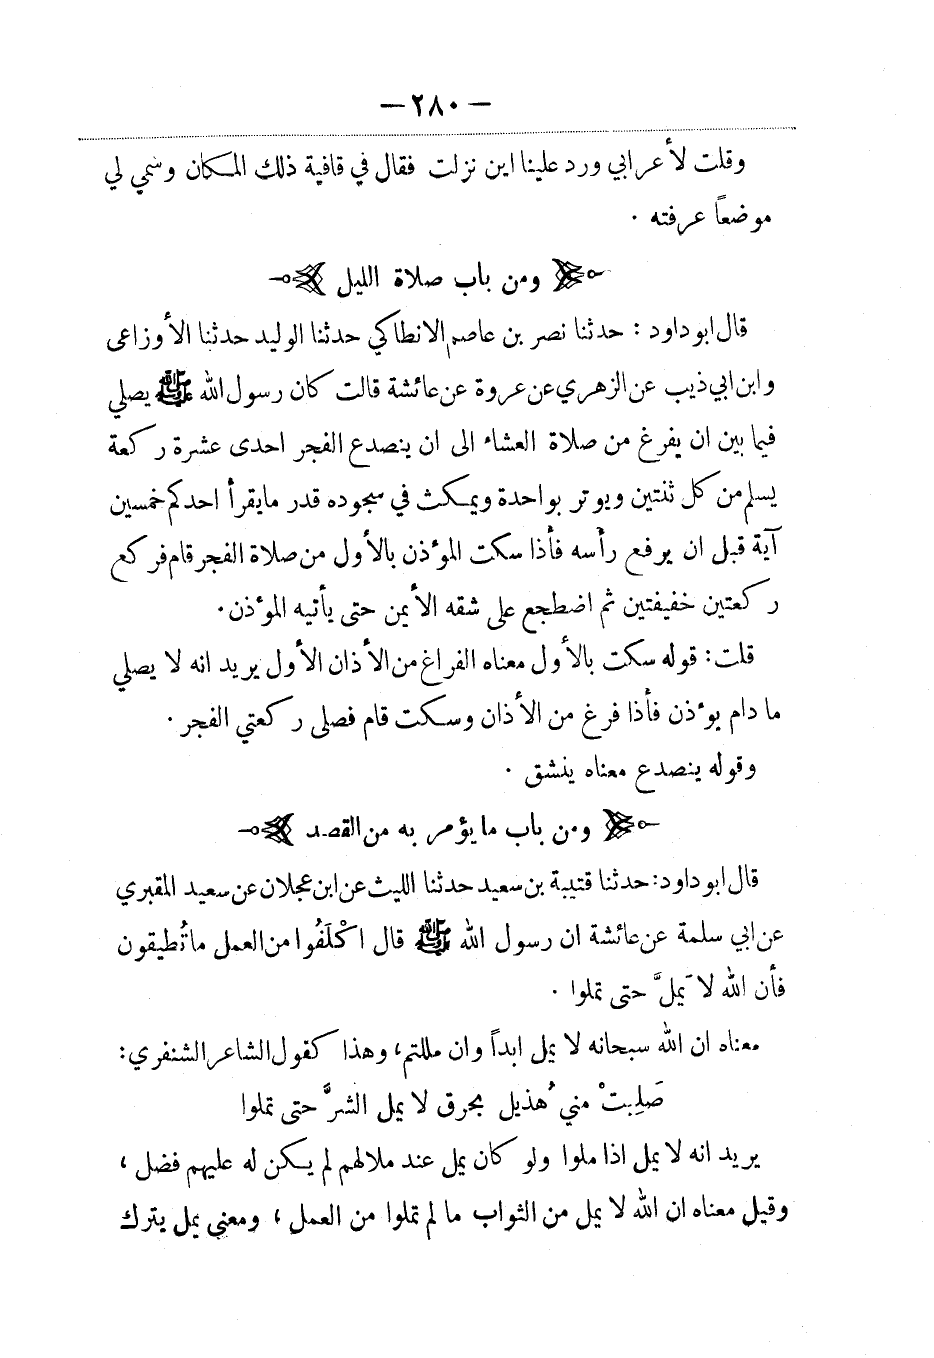 — ٢٨٠ —
وقلت لأعرابي ورد علينا اين نزلت فقال في قافية ذلك المكان وسمي لي
موضعاً عرفته .
ومن باب صلاة الليل
قال ابو داود : حدثنا نصر بن عاصم الانطاكي حدثنا الوليد حدثنا الأوزاعى
وابن ابي ذيب عن الزهري عن عروة عن عائشة قالت كان رسول الله ﷺ يصلي
فيما بين ان يفرغ من صلاة العشاء الى ان ينصدع الفجر احدى عشرة ركعة
يسلم من كل ثنتين ويوتر بواحدة ويمكث في سجوده قدر مايقرأ احدكم خمسين
آية قبل ان يرفع رأسه فأذا سكت المؤذن بالأول من صلاة الفجر قام فركع
ركعتين خفيفتين ثم اضطجع على شقه الأيمن حتى يأتيه المؤذن .
قلت : قوله سكت بالأول معناه الفراغ من الأذان الأول يريد انه لا يصلي
ما دام يؤذن فأذا فرغ من الأذان وسكت قام فصلى ركعتي الفجر .
وقوله ينصدع معناه ينشق .
ومن باب ما يؤمر به من القصد
قال ابو داود : حدثنا قتيبة بن سعيد حدثنا الليث عن ابن عجلان عن سعيد المقبري
عن ابي سلمة عن عائشة ان رسول الله ﷺ قال اكْلَفُوا من العمل ما تُطيقون
فأن الله لا يَملَّ حتى تملوا .
معناه ان الله سبحانه لا يمل ابداً وان مللتم، وهذا كقول الشاعر الشنفري :
صَلِبتْ مني هُذيل بخرق لا يمل الشرَّ حتى تملوا
يريد انه لا يمل اذا ملوا ولو كان يمل عند ملالهم لم يكن له عليهم فضل ،
وقيل معناه ان الله لا يمل من الثواب ما لم تملوا من العمل ، ومعنى يمل يترك